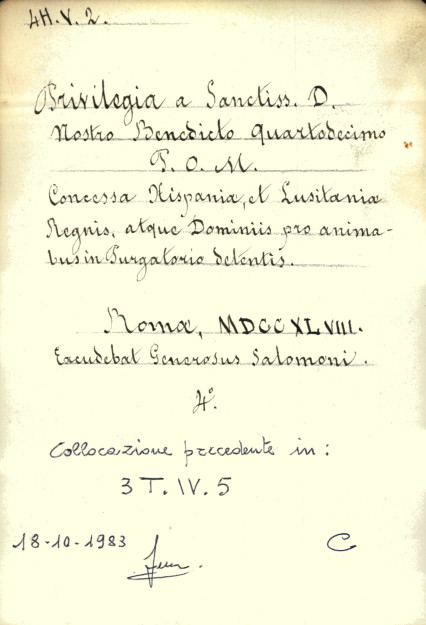 4H.V.2.
Privilegia a Sanctiss. D.
Nostro Benedicto Quartodecimo
P. O. M.
Concessa Hispaniæ, et Lusitaniæ
Regnis, atque Dominiis pro anima-
bus in Purgatorio detentis.
Romæ, MDCCXLVIII.
Excudebat Generosus Salomoni.
4º.
Collocazione precedente in:
3 T. IV. 5
18-10-1983
C